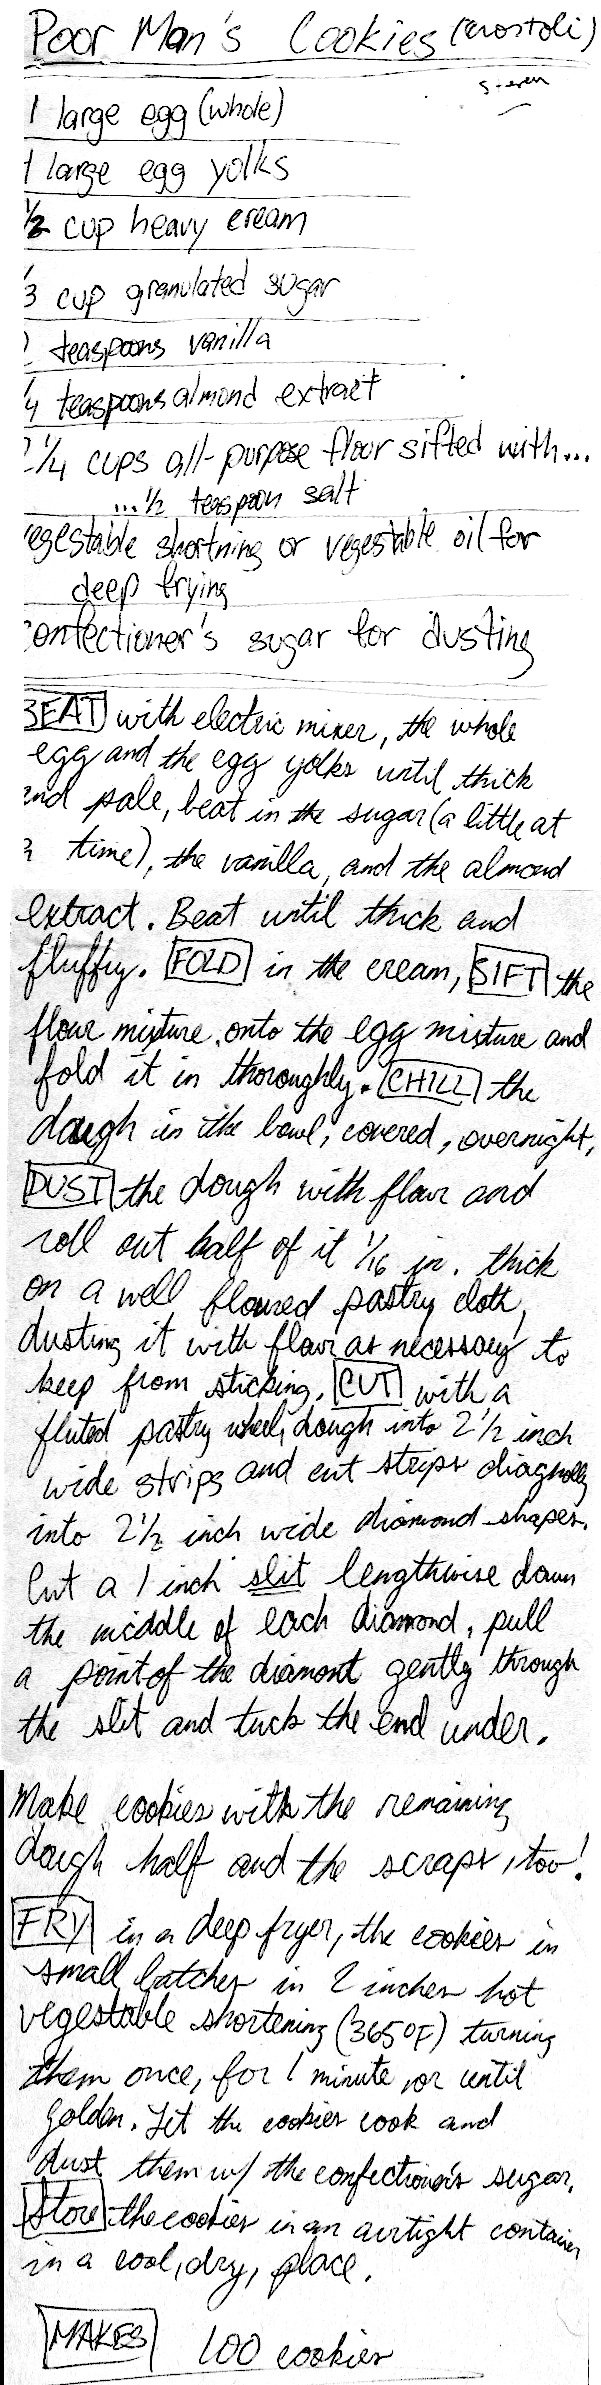 Poor Man's Cookies (crostoli)
1 large egg (whole)
large egg yolks
1/2 cup heavy cream
/3 cup granulated sugar
teaspoons vanilla
/4 teaspoons almond extract
1/4 cups all-purpose flour sifted with...
...1/2 teaspoon salt
egestable shortning or vegestable oil for
deep frying
onfectioner's sugar for dusting
BEAT with electric mixer, the whole
egg and the egg yolks until thick
and pale, beat in the sugar (a little at
a time), the vanilla, and the almond
extract. Beat until thick and
fluffy. FOLD in the cream, SIFT the
flour mixture onto the egg mixture and
fold it in thoroughly. CHILL the
dough in the bowl, covered, overnight,
DUST the dough with flour and
roll out half of it 1/16 in. thick
on a well floured pastry cloth,
dusting it with flour as necessary to
keep from sticking. CUT with a
fluted pastry wheel, dough into 2 1/2 inch
wide strips and cut strips diagnolly
into 2 1/2 inch wide diamond-shapes.
Cut a 1 inch slit lengthwise down
the middle of each diamond, pull
a point of the diamont gently through
the slit and tuck the end under.
Make cookies with the remaining
dough half and the scraps, too!
FRY in a deep fryer, the cookies in
small batches in 2 inches hot
vegestable shortening (365°F) turning
them once, for 1 minute or until
golden. Let the cookies cook and
dust them w/ the confectioner's sugar.
Store the cookies in an airtight container
in a cool, dry, place.
MAKES 100 cookies